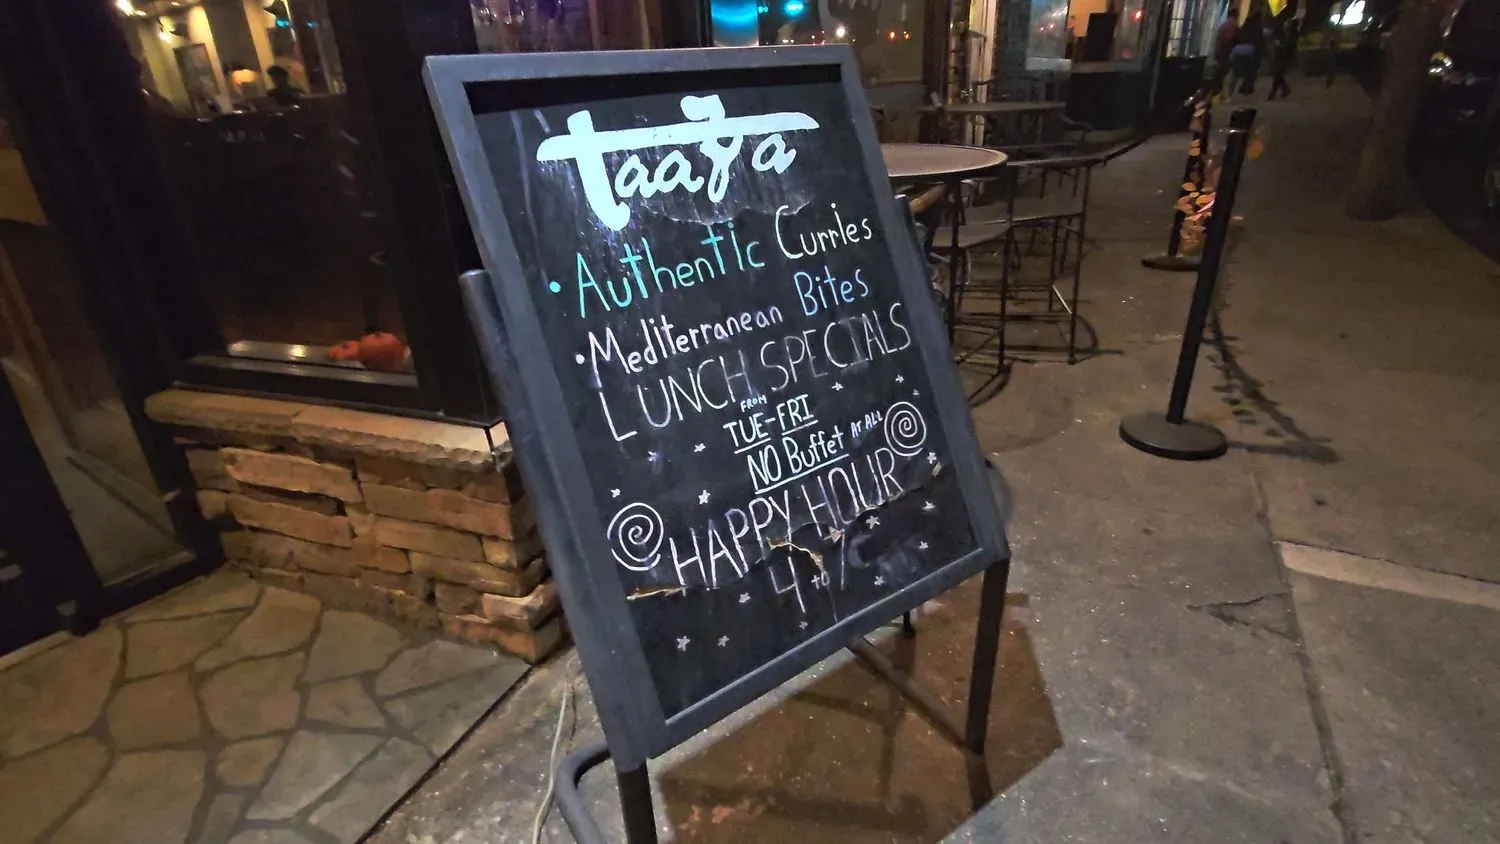 taaza
• Authentic Curries
• Mediterranean Bites
LUNCH SPECIALS
FROM
TUE-FRI
NO Buffet AT ALL
HAPPY HOUR
4 to 7